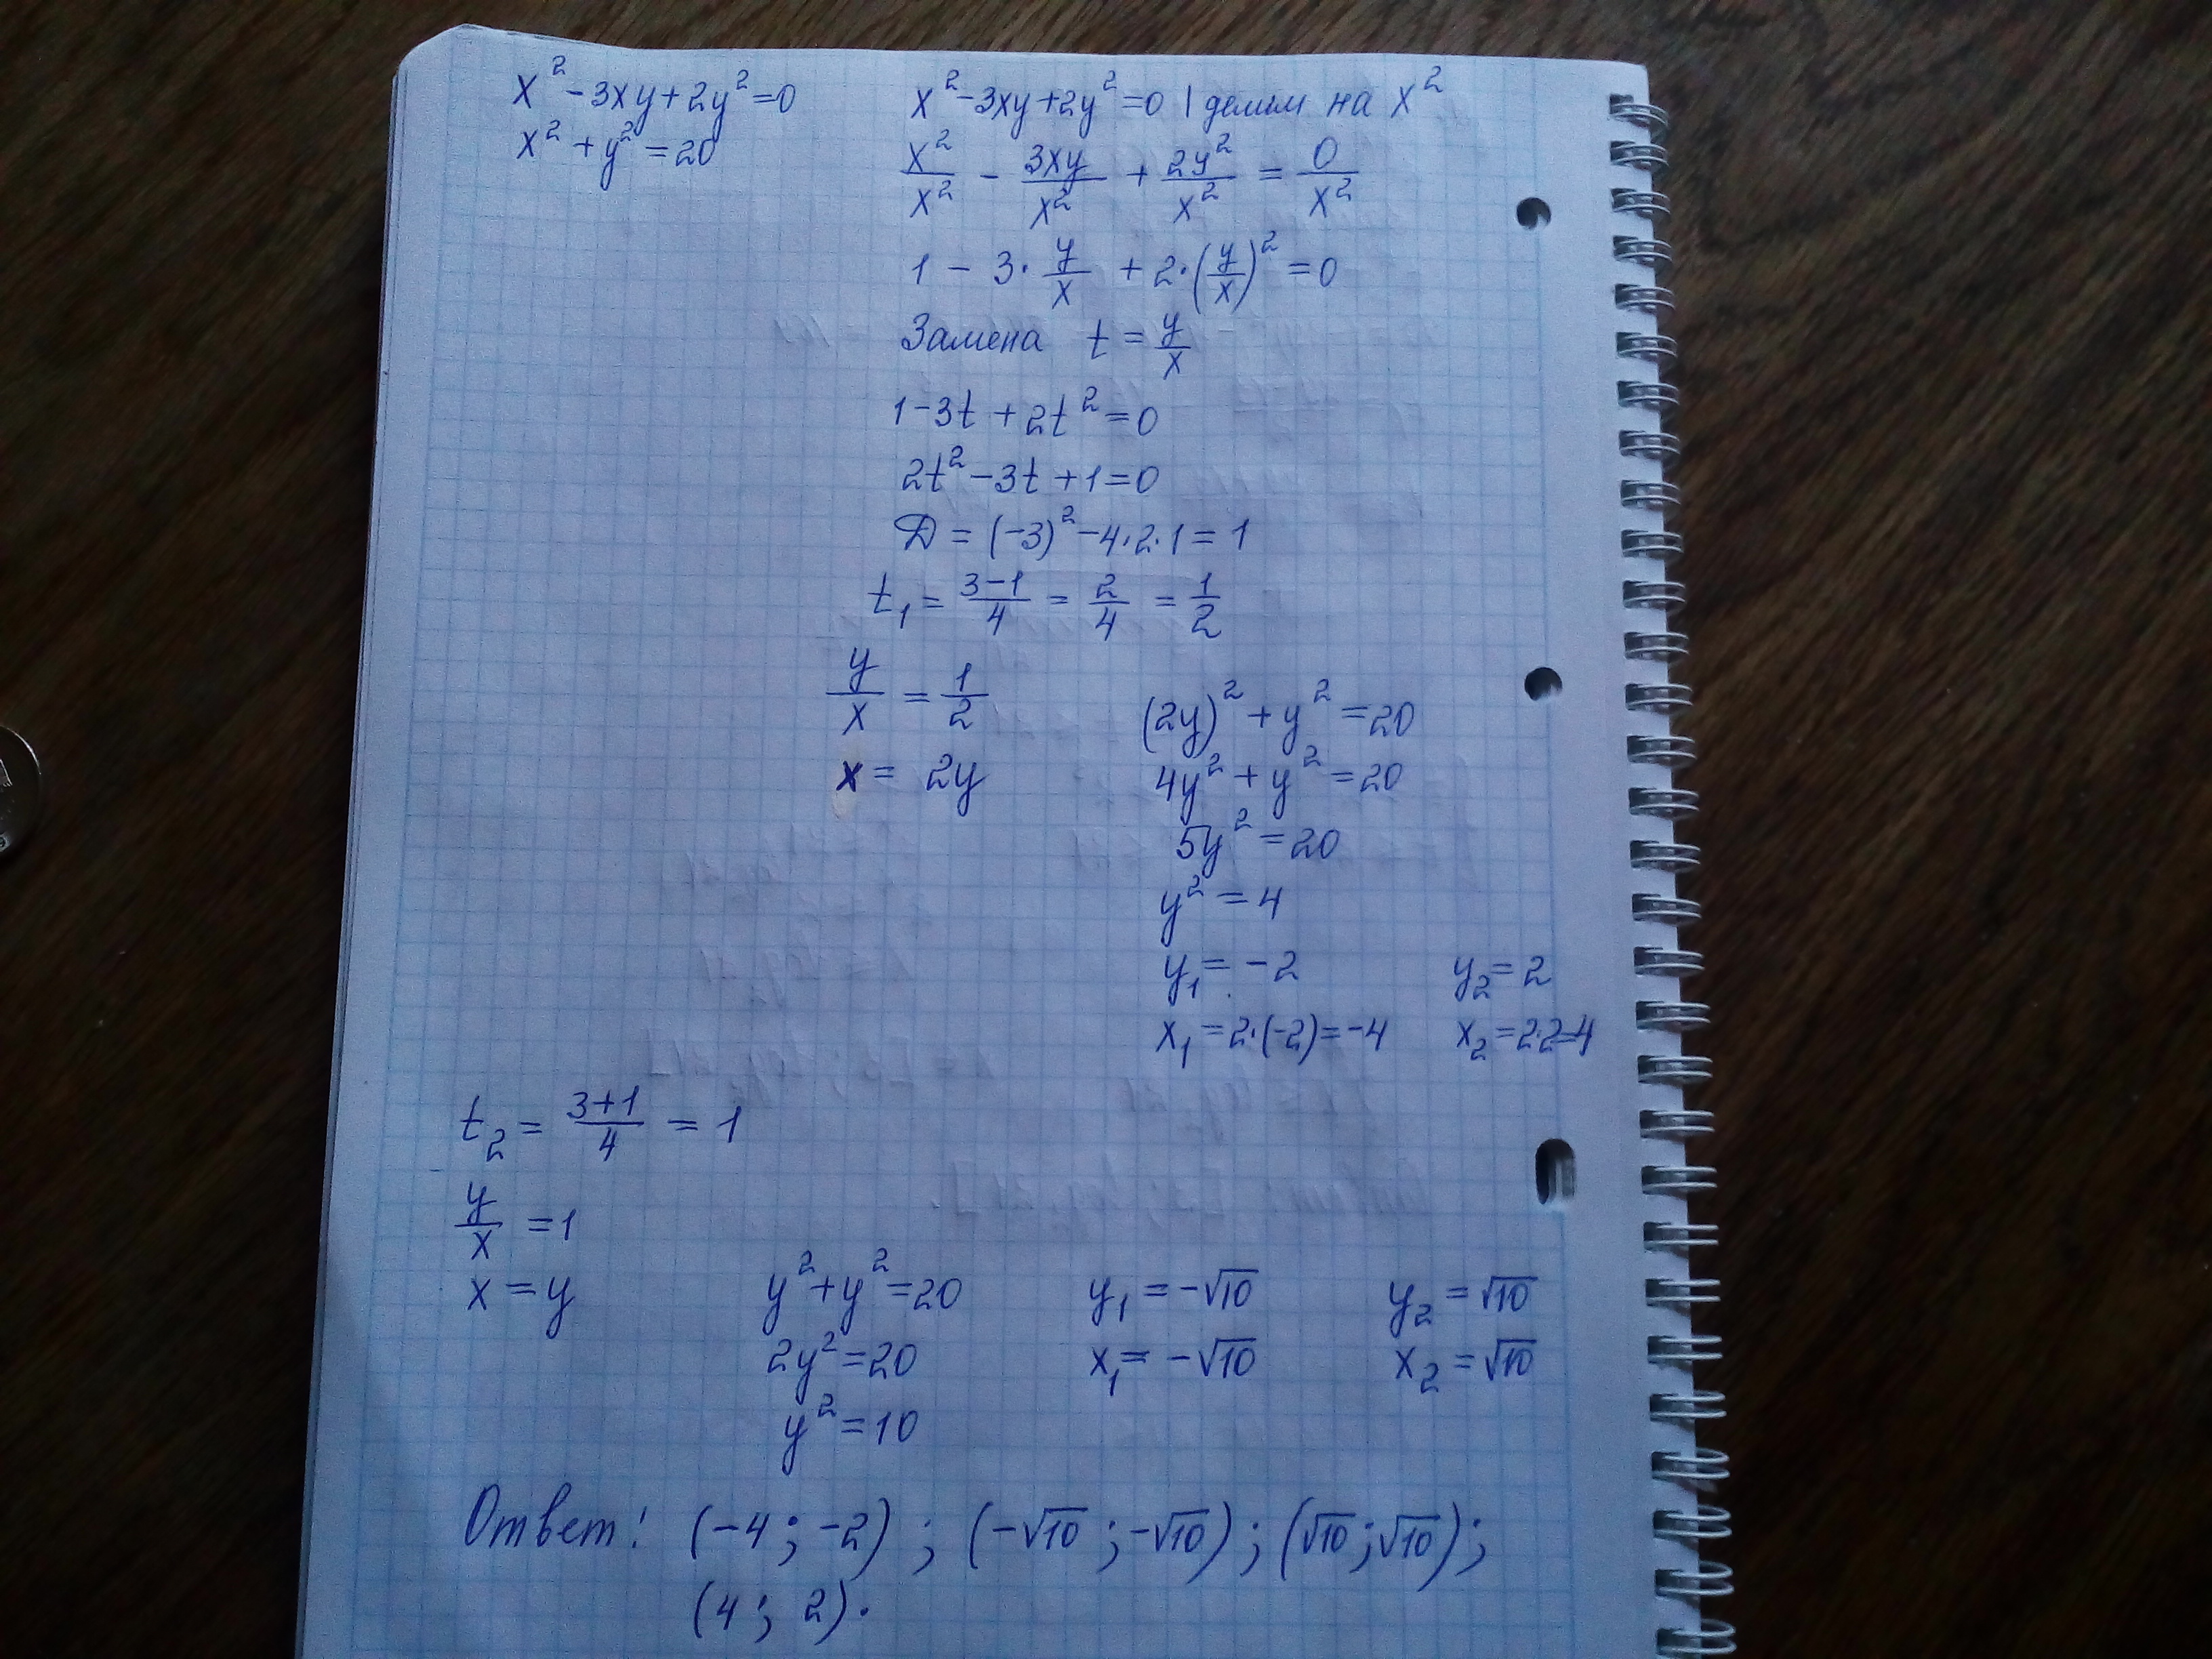 x² - 3xy + 2y² = 0
x² + y² = 20
x² - 3xy + 2y² = 0 | делим на x²
x²/x² - 3xy/x² + 2y²/x² = 0/x²
1 - 3·y/x + 2·(y/x)² = 0
Замена t = y/x
1 - 3t + 2t² = 0
2t² - 3t + 1 = 0
D = (-3)² - 4·2·1 = 1
t₁ = (3-1)/4 = 2/4 = 1/2
y/x = 1/2
x = 2y
(2y)² + y² = 20
4y² + y² = 20
5y² = 20
y² = 4
y₁ = -2 y₂ = 2
x₁ = 2·(-2) = -4 x₂ = 2·2=4
t₂ = (3+1)/4 = 1
y/x = 1
x = y
y² + y² = 20
2y² = 20
y² = 10
y₁ = -√10 y₂ = √10
x₁ = -√10 x₂ = √10
Ответ: (-4; -2); (-√10; -√10); (√10; √10);
(4; 2).